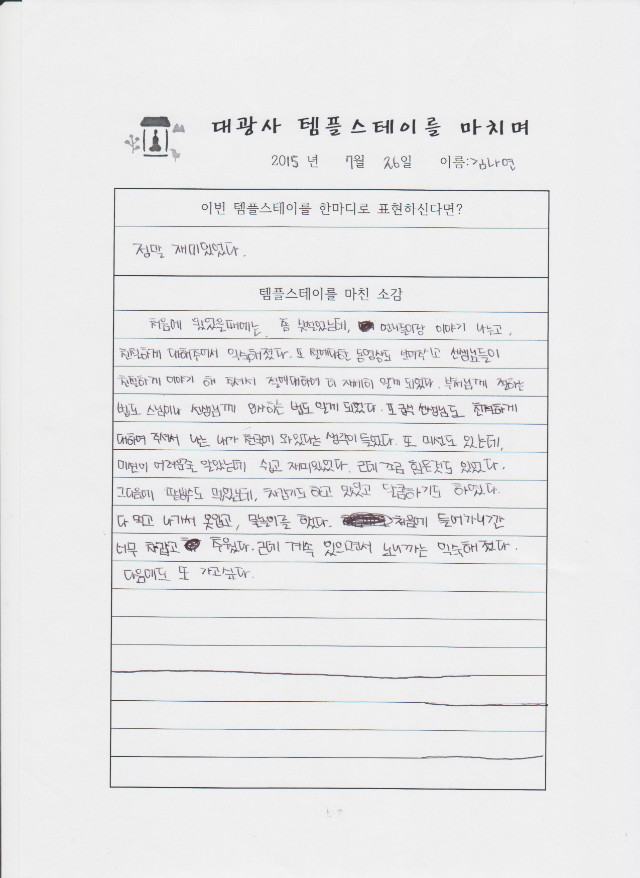 대광사 템플스테이를 마치며
2015 년 7월 26일 이름:김나연
이번 템플스테이를 한마디로 표현하신다면?
정말 재미있었다.
템플스테이를 마친 소감
처음에 왔었을때에는 좀 낯설었는데, 언니들이랑 이야기 나누고,
친절하게 대해주어서 익숙해졌다. 또 절에대한 동영상도 보여주시고 선생님들이
친절하게 이야기 해 주셔서 절에대하여 더 자세히 알게 되었다. 부처님께 절하는
법도 스님이나 선생님께 인사하는 법도 알게 되었다. 또 선생님도 친절하게
대하여 주셔서 나는 내가 천국에 와있다는 생각이 들었다. 또 미션도 있는데,
미션이 어려울줄 알았는데 쉽고 재미있었다. 근데 조금 힘든것도 있었다.
그다음에 팥빙수도 먹었는데, 차갑기도 하고 맛있고 달콤하기도 하였다.
다 먹고 나가서 옷입고, 물놀이를 했다. 처음에 들어가니깐
너무 차갑고 추웠다. 근데 계속 있으면서 노니까는 익숙해졌다.
다음에도 또 가고싶다.